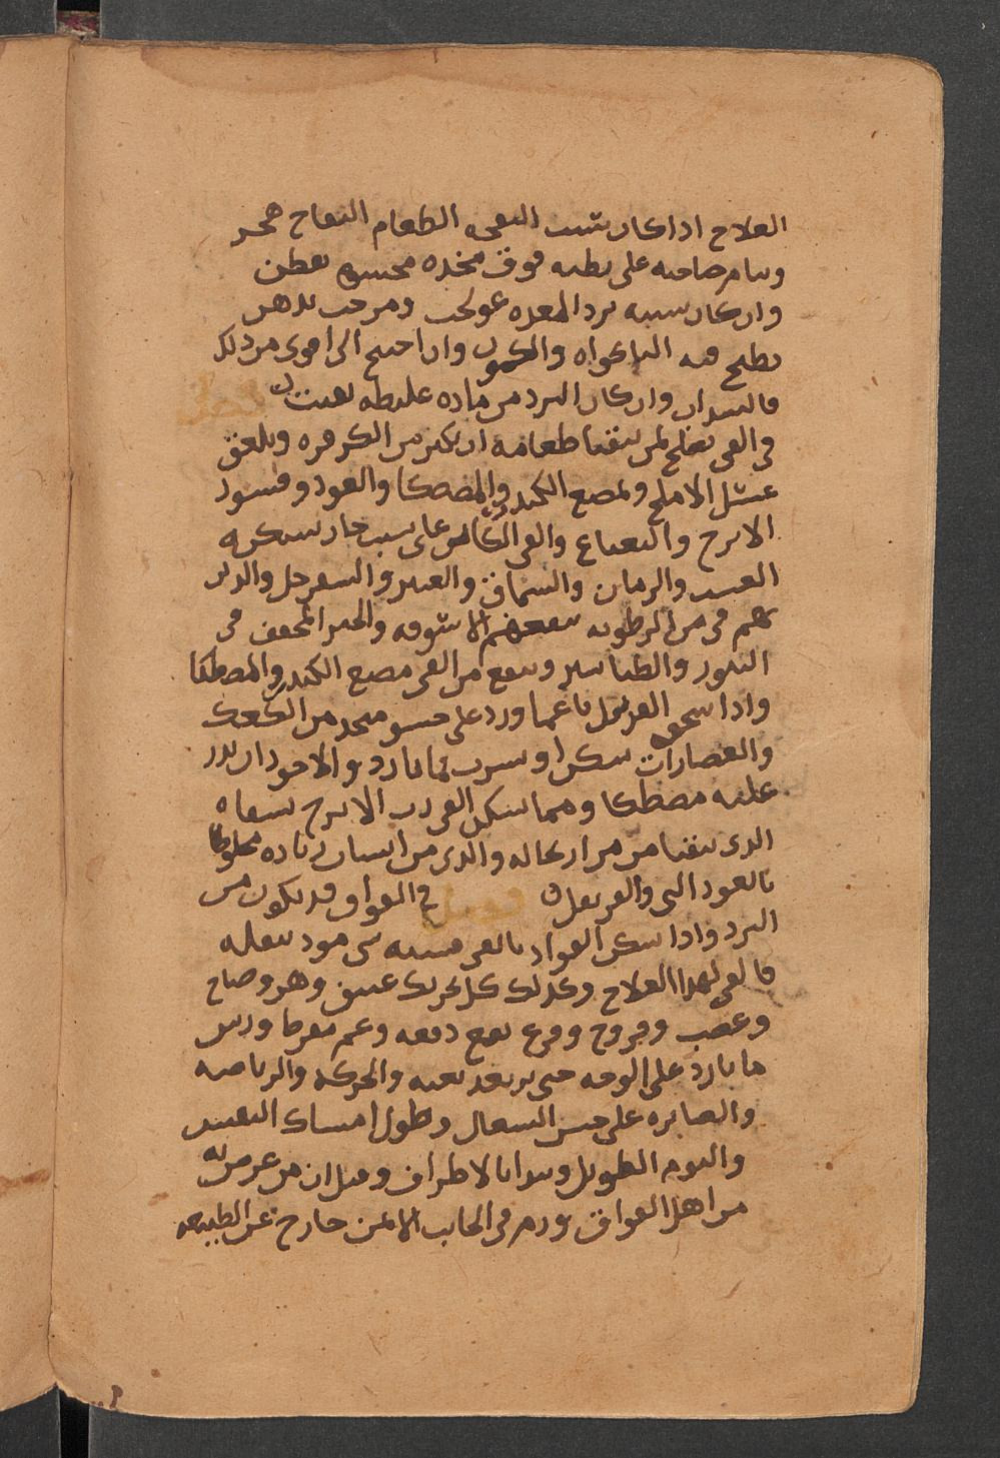 العلاج اذا كان سبب النفخه الطعام النفاخ هجر
وينام صاحبه على بطنه فوق مخده محشوه بقطن
وان كان سببه برد المعده عولجت ومرخت بدهن
يطبخ فيه النانخواه والكمون وان احتيج الى اقوى من ذلك
فالسداب وان كان البرد من ماده غليظه نقيت فصل
في القي يعالج لمن يتقيا طعامه ان يكثر من الكزبره ويلعق
عسل الاملج ويمضع الكندر والمصطكا والعود وقشور
الاترج والنعناع والقي الكائن على سبب حار يسكنه
العدس والرمان والسماق والغبيرا والسفرجل والذين
بهم قي من الرطوبه ينفعهم الاسوقه والخبز المجفف في
التنور والطباشير وينفع من القي مضع الكندر والمصطكا
واذا سحق القرنفل ناعما وورد على حسو متخذ من الكعك
والعصارات سكن او شرب بماء بارد والاجود ان يذر
عليه مصطكا ومما يسكن القي رب الاترج يسقاه
الذي يتقيا من مرار كما له والذي من اسباب بارده مخلوطا
بالعود الني والقرنفل فصل في الفواق قد يكون من
البرد واذا سكن الفواق بالقي فسببه شي موذ بثقله
فالقي لهذا العلاج وكذلك كل تحريك عنيف وهز وصياح
وغضب وفروح وفزع يقع دفعه وغم مفرط ورش
ماء بارد على الوجه حتى يرتعد بغته والحركه والرياضه
والصابره على حبس السعال وطول امساك النفس
والنوم الطويل وشد الاطراف وقيل ان من عرض له
من اهل الفواق ورم في الجانب الايمن خارج عن الطبيعه